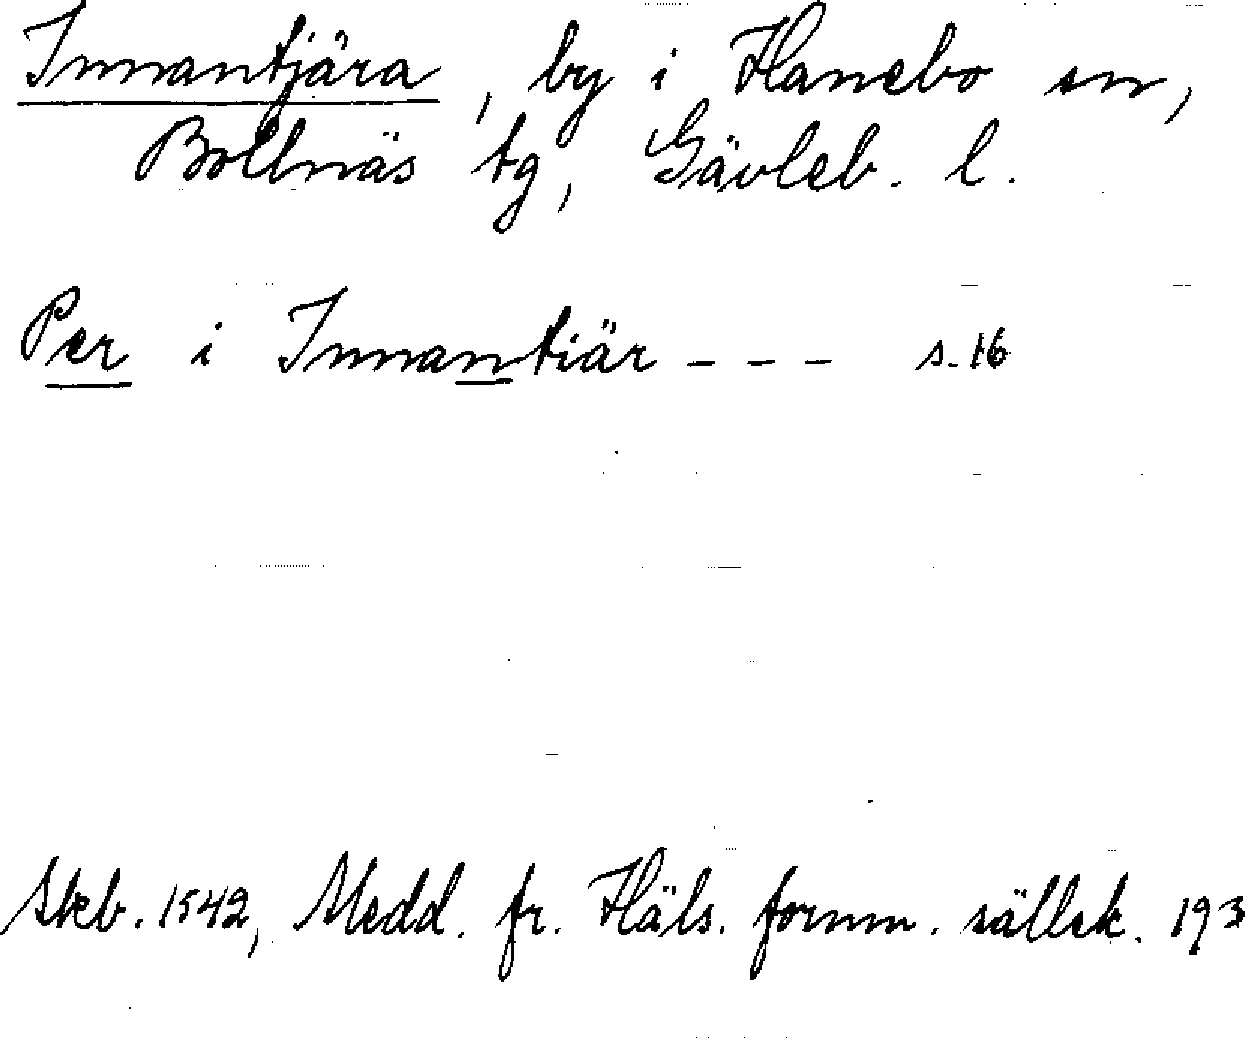 Innantjära, by i Hanebo sn,
Bollnäs tg, Gävleb. l.
Per i Innantiär - - - s. 16
Skeb. 1542, Medd. fr. Häls. fornm. sällsk. 193